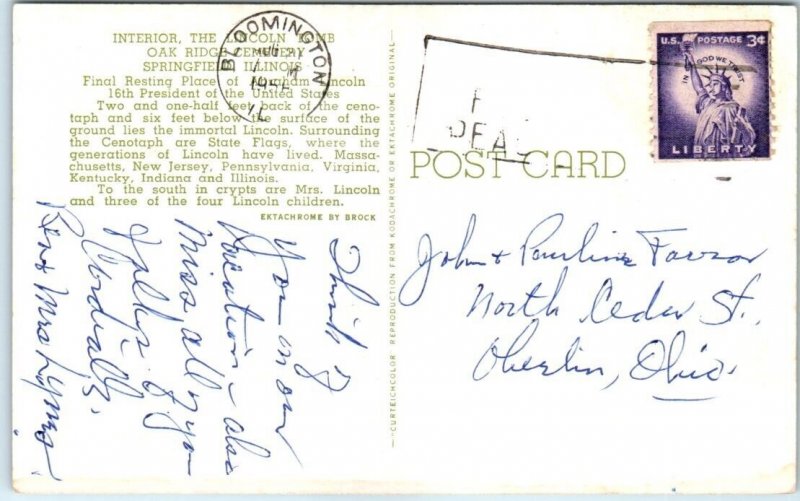 INTERIOR, THE LINCOLN TOMB
OAK RIDGE CEMETERY
SPRINGFIELD, ILLINOIS
Final Resting Place of Abraham Lincoln
16th President of the United States
Two and one-half feet back of the ceno-
taph and six feet below the surface of the
ground lies the immortal Lincoln. Surrounding
the Cenotaph are State Flags, where the
generations of Lincoln have lived. Massa-
chusetts, New Jersey, Pennsylvania, Virginia,
Kentucky, Indiana and Illinois.
To the south in crypts are Mrs. Lincoln
and three of the four Lincoln children.
EKTACHROME BY BROCK
BLOOMINGTON
AUG
ILL
Think of
you on our
Vacation - also
Miss all of you
Folks
Cordially,
Rev & Mrs Lynes
"CURTEICHCOLOR" REPRODUCTION FROM KODACHROME OR EKTACHROME ORIGINAL
POST CARD
U.S. POSTAGE 3¢
IN GOD WE TRUST
LIBERTY
John & Pauline
North Cedar St.
Oberlin, Ohio.